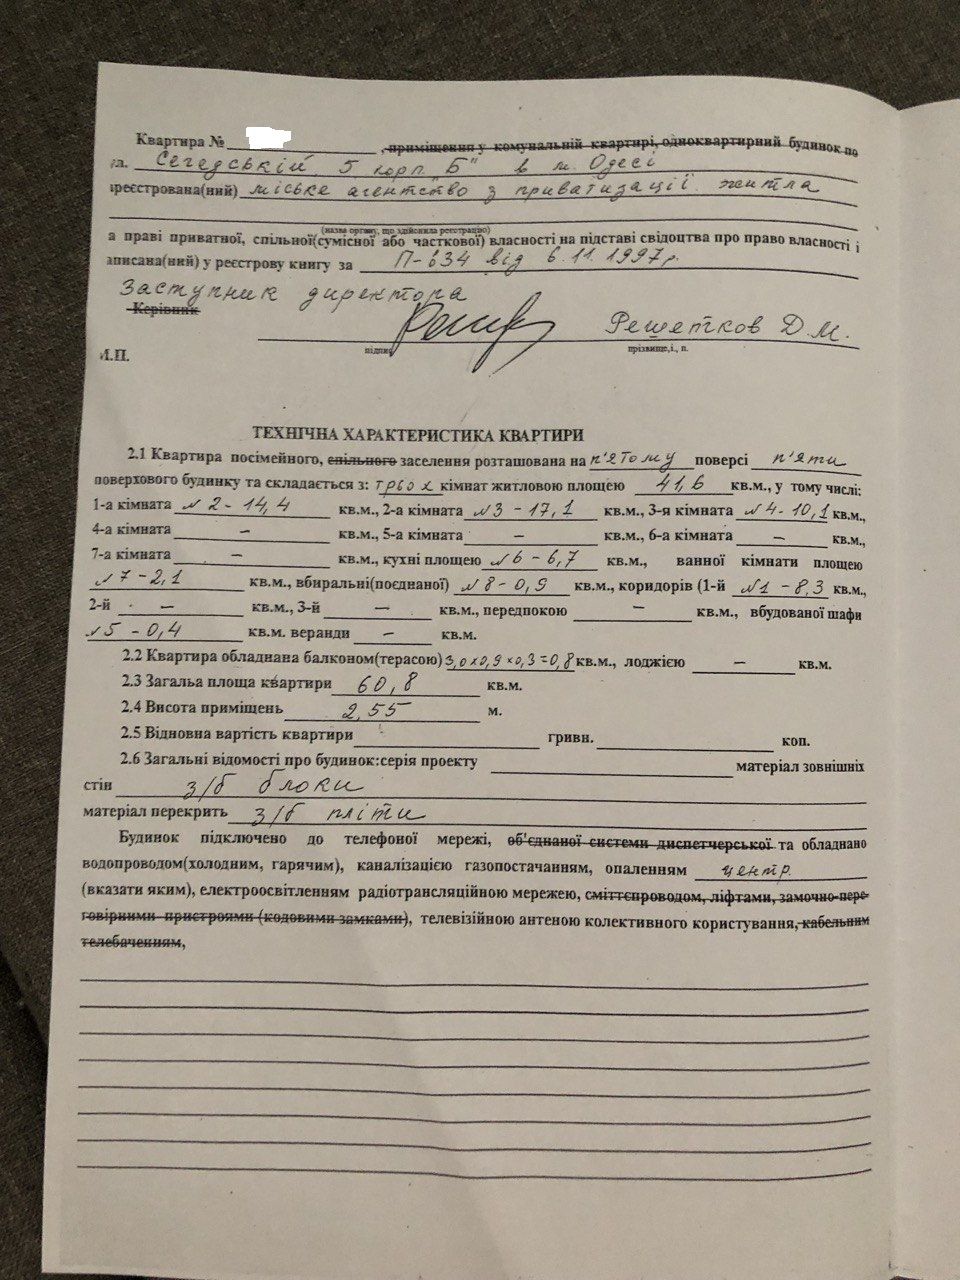 Квартира № , приміщення у комунальній квартирі, одноквартирний будинок по
ул. Сегедській 5 корп „Б" в м. Одесі
ареєстрована(ний) міське агентство з приватизації житла
(назва органу, що здійснила реєстрацію)
а праві приватної, спільної(сумісної або часткової) власності на підставі свідоцтва про право власності і
аписана(ний) у реєстрову книгу за П-634 від 6.11.1997р.
Заступник директора
Керівник
Решетков Д.М.
підпис прізвище,і., п.
М.П.
ТЕХНІЧНА ХАРАКТЕРИСТИКА КВАРТИРИ
2.1 Квартира посімейного, спільного заселення розташована на п'ятому поверсі п'яти
поверхового будинку та складається з: трьох кімнат житловою площею 41,6 кв.м., у тому числі:
1-а кімната №2-14,4 кв.м., 2-а кімната №3-17,1 кв.м., 3-я кімната №4-10,1 кв.м.,
4-а кімната – кв.м., 5-а кімната – кв.м., 6-а кімната – кв.м.,
7-а кімната – кв.м., кухні площею №6-6,7 кв.м., ванної кімнати площею
№7-2,1 кв.м., вбиральні(поєднаної) №8-0,9 кв.м., коридорів (1-й №1-8,3 кв.м.,
2-й – кв.м., 3-й – кв.м., передпокою – кв.м., вбудованої шафи
№5-0,4 кв.м. веранди – кв.м.
2.2 Квартира обладнана балконом(терасою) 3,0х0,9х0,3=0,8 кв.м., лоджією – кв.м.
2.3 Загальа площа квартири 60,8 кв.м.
2.4 Висота приміщень 2,55 м.
2.5 Відновна вартість квартири гривн. коп.
2.6 Загальні відомості про будинок:серія проекту матеріал зовнішніх
стін з/б блоки
матеріал перекрить з/б пліти
Будинок підключено до телефоної мережі, об'єднаної системи диспетчерської та обладнано
водопроводом(холодним, гарячим), каналізацією газопостачанням, опаленням центр.
(вказати яким), електроосвітленням радіотрансляційною мережею, сміттєпроводом, ліфтами, замочно-пере-
говірними пристроями (кодовими замками), телевізійною антеною колективного користування, кабельним
телебаченням,